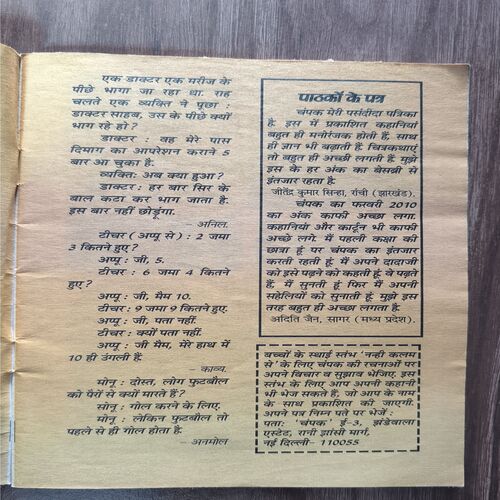 एक डाक्टर एक मरीज के
पीछे भागा जा रहा था. राह
चलते एक व्यक्ति ने पूछा :
डाक्टर साहब, उस के पीछे क्यों
भाग रहे हो?
डाक्टर : वह मेरे पास
दिमाग का आपरेशन कराने 5
बार आ चुका है.
व्यक्तिः अब क्या हुआ?
डाक्टर : हर बार सिर के
बाल कटा कर भाग जाता है.
इस बार नहीं छोडूंगा.
– अनिल.
टीचर (अप्पू से) : 2 जमा
3 कितने हुए?
अप्पू : जी, 5.
टीचर : 6 जमा 4 कितने
हुए?
अप्पू : जी, मैम 10.
टीचर : 9 जमा 9 कितने हुए.
अप्पू : जी, पता नहीं.
टीचर : क्यों पता नहीं.
अप्पू : जी मैम, मेरे हाथ में
10 ही उंगली हैं.
– काव्य.
मोनू : दोस्त, लोग फुटबौल
को पैरों से क्यों मारते हैं?
सोनू : गोल करने के लिए.
मोनू : लेकिन फुटबौल तो
पहले से ही गोल होता है.
– अनमोल
पाठकों के पत्र
चंपक मेरी पसंदीदा पत्रिका
है. इस में प्रकाशित कहानियां
बहुत ही मनोरंजक होती हैं, साथ
ही ज्ञान भी बढ़ाती हैं. चित्रकथाएं
तो बहुत ही अच्छी लगती हैं. मुझे
इस के हर अंक का बेसब्री से
इंतजार रहता है.
जीतेंद्र कुमार सिन्हा, रांची (झारखंड).
चंपक का फरवरी 2010
का अंक काफी अच्छा लगा.
कहानियां और कार्टून भी काफी
अच्छे लगे. मैं पहली कक्षा की
छात्रा हूं पर चंपक का इंतजार
करती रहती हूं. मैं अपने दादाजी
को इसे पढ़ने को कहती हूं. वे पढ़ते
हैं, मैं सुनती हूं फिर मैं अपनी
सहेलियों को सुनाती हूं. मुझे इस
तरह बहुत ही अच्छा लगता है.
अदिति जैन, सागर (मध्य प्रदेश).
बच्चों के स्थाई स्तंभ 'नन्ही कलम
से' के लिए चंपक की रचनाओं पर
अपने विचार व सुझाव भेजिए. इस
स्तंभ के लिए आप अपनी कहानी
भी भेज सकते हैं, जो आप के नाम
के साथ प्रकाशित की जाएगी.
अपने पत्र निम्न पते पर भेजें :
पताः 'चंपक' ई-3, झंडेवाला
एस्टेट, रानी झांसी मार्ग,
नई दिल्ली– 110055